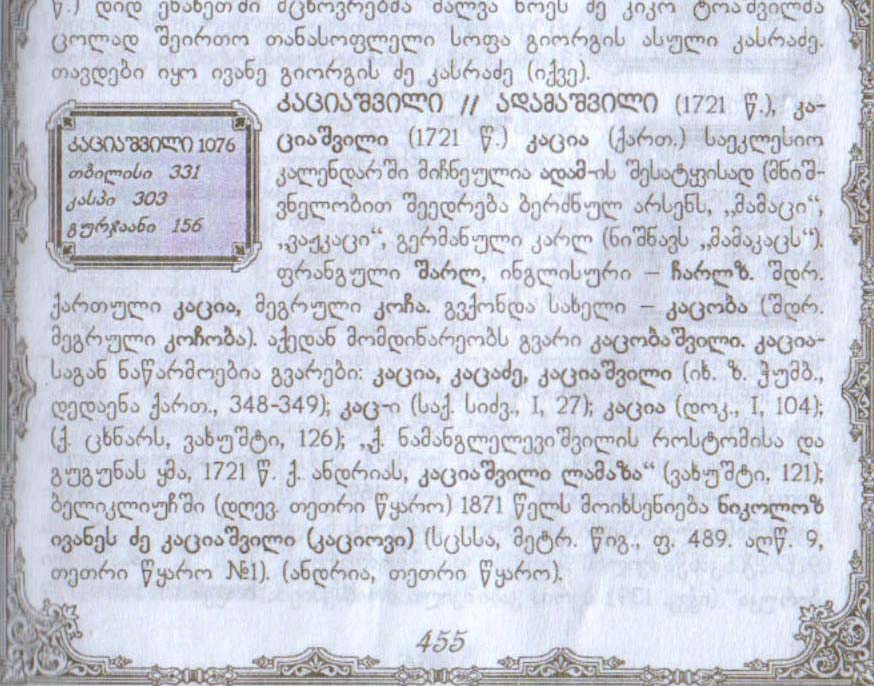 წ.) დიდ ენაგეთში მცხოვრებმა შალვა ნოეს ძე კიკო ტოაშვილმა
ცოლად შეირთო თანასოფლელი სოფა გიორგის ასული კასრაძე.
თავდები იყო ივანე გიორგის ძე კასრაძე (იქვე).
კაციაშვილი 1076
თბილისი 331
კასპი 303
გურჯაანი 156
კაციაშვილი // ადამაშვილი (1721 წ.), კა-
ციაშვილი (1721 წ.) კაცია (ქართ.) საეკლესიო
კალენდარში მიჩნეულია ადამ-ის შესატყვისად (მნიშ-
ვნელობით შეედრება ბერძნულ არსენს, „მამაცი“,
„ვაჟკაცი“, გერმანული კარლ (ნიშნავს „მამაკაცს“).
ფრანგული შარლ, ინგლისური – ჩარლზ. შდრ.
ქართული კაცია, მეგრული კოჩა. გვქონდა სახელი – კაცობა (შდრ.
მეგრული კოჩობა). აქედან მომდინარეობს გვარი კაცობაშვილი. კაცია-
საგან ნაწარმოებია გვარები: კაცია, კაცაძე, კაციაშვილი (იხ. ზ. ჭუმბ.,
დედაენა ქართ., 348-349); კაც-ი (საქ. სიძვ., I, 27); კაცია (დოკ., I, 104);
(ქ. ცხნარს, ვახუშტი, 126); „ქ. ნამანგლელევიშვილის როსტომისა და
გუგუნას ყმა, 1721 წ. ქ. ანდრიას, კაციაშვილი ლამაზა“ (ვახუშტი, 121);
ბელიკლიუჩში (დღევ. თეთრი წყარო) 1871 წელს მოიხსენიება ნიკოლოზ
ივანეს ძე კაციაშვილი (კაციოვი) (სცსსა, მეტრ. წიგ., ფ. 489. აღწ. 9,
თეთრი წყარო №1). (ანდრია, თეთრი წყარო).
455